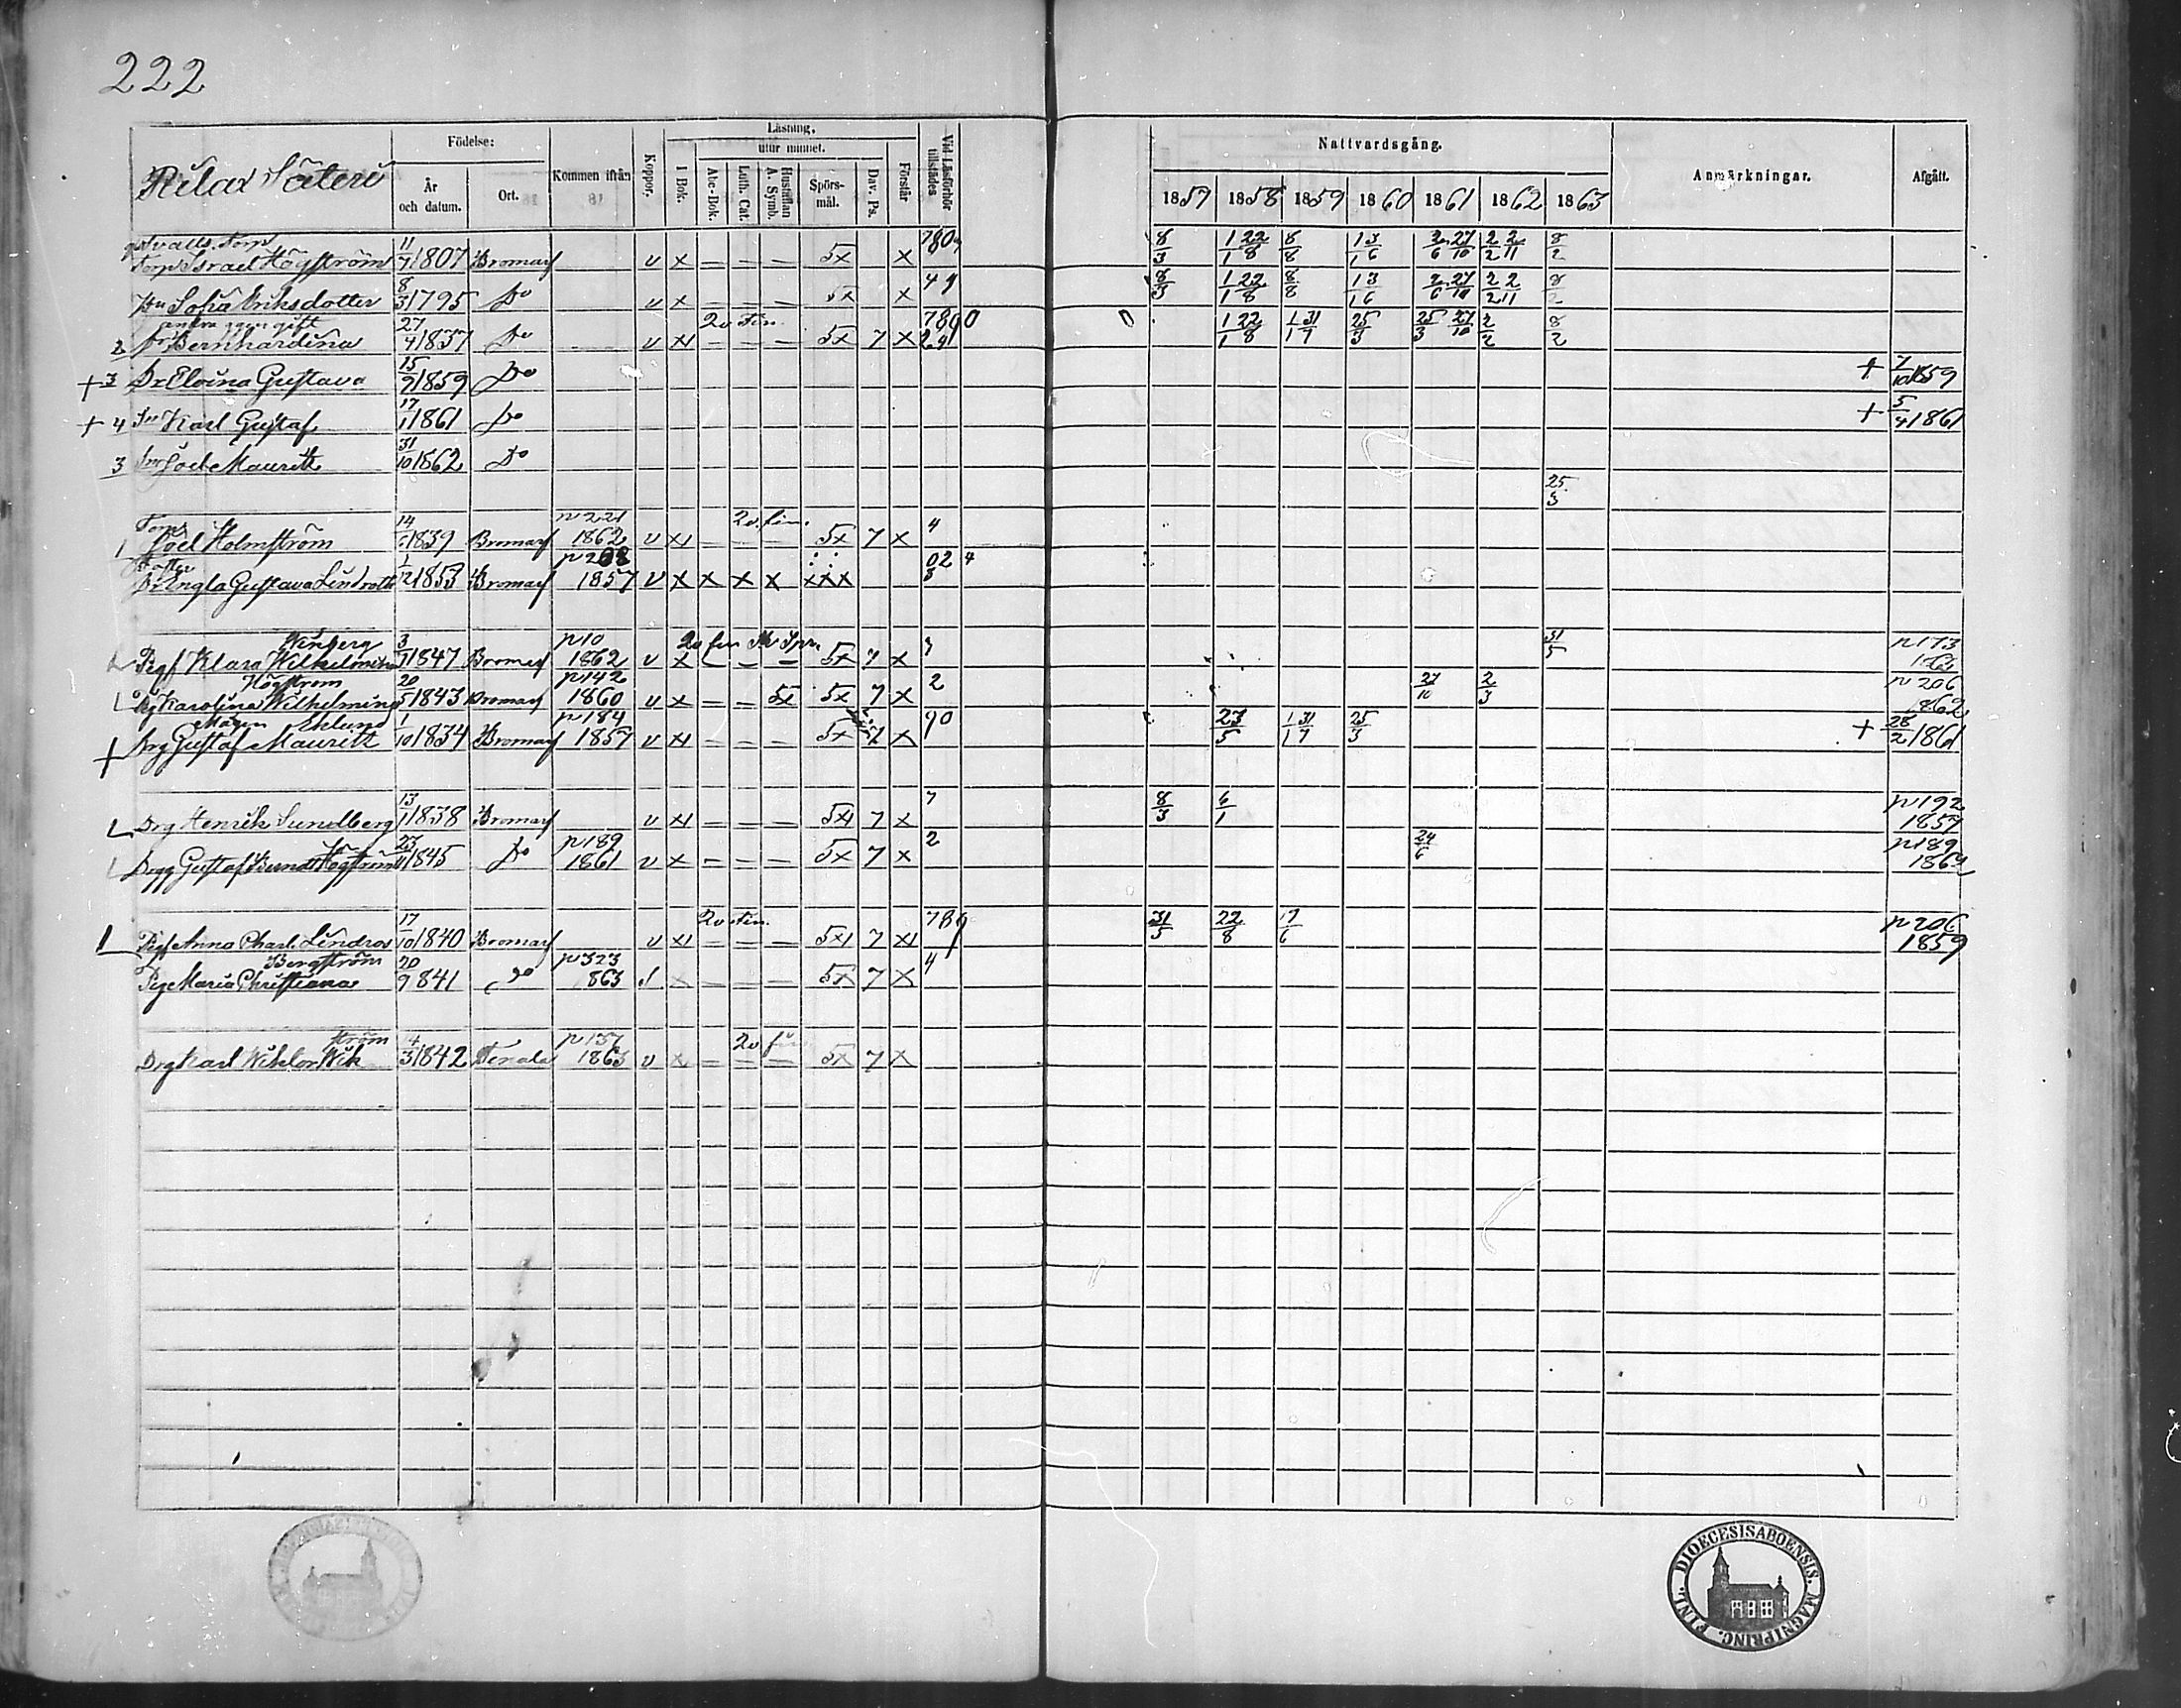 222
Rilax Säteri
Födelse:
År och datum.
Ort.
Kommen ifrån
18
Koppor.
Läsning.
I Bok.
utur minnet.
Abc-Bok.
Luth. Cat.
Hustaflan A. Symb.
Spörsmål.
Dav. Ps.
Förstår
Vid Läsförhör tillstädes
Nattvardsgång.
1857 1858 1859 1860 1861 1862 1863
Anmärkningar.
Afgått.
Torp. Israel Högström 11/7 1807 Bromarf v x — — — 5x x 8/3 1/1 22/8 8/8 13/6 2/6 27/10 2/2 2/11 8/2
Hu Sofia Eriksdotter 8/3 1795 Do v x — — — 5x x 49 8/3 1/1 22/8 8/8 13/6 2/6 27/10 2/2 2/11 8/2
andra ggn gift
2 Dr Bernhardina 27/4 1837 Do v x — — — 5x 7 x 1/1 22/8 1/1 31/7 25/3 25/3 27/10 2/2 8/2
+ 3 Dr Elvina Gustava 15/9 1859 Do + 7/10 1859
+ 4 Sn Karl Gustaf 17/1 1861 Do + 5/4 1861
3 Son Joel Mauritz 31/10 1862 Do
25/3
Torp.
1 Joel Holmström 14 1839 Bromarf p 221 1862 v x — — — 5x 7 x 4
Dr Engla Gustava Lindroth 1/12 1853 Bromarf 1857 v x x x x xxx 02 4
Winberg
Pig Klara Wilhelmina 3 1847 Bromarf p 10 1862 v x — — — 5x 7 x 31/5 p 173
Högström
Pig Karolina Wilhelmina 20/5 1843 Bromarf p 142 1860 v x — — 5x 5x 7 x 2 27/10 2/3 p 206 1862
Ehlund
+ Drg Gustaf Mauritz 1/10 1834 Bromarf p 184 1857 v x — — — 5x 7 x 90 23/5 1/1 31/7 25/3 + 28/2 1861
Drg Henrik Sundberg 13/1 1838 Bromarf v x — — — 5x 7 x 7 8/3 6/1 p 192 1857
Drg Gustaf Berndt Högström 23 1845 Do p 189 1861 v x — — — 5x 7 x 2 24/6 p 189 1862
Pig Anna Charl. Lindros 17/10 1840 Bromarf v x — — — 5x 7 x 789 31/5 22/8 17/6 p 206 1859
Bergström
Pig Maria Christiana 20/9 841 Do p 323 863 x — — — 5x 7 x 4
ström
Drg Karl Wiktor Wik 14/3 1842 Tenala p 137 1863 v x — — — 5x 7 x
FINL. DIOECESIS ABOENSIS. MAGNI PRINC.